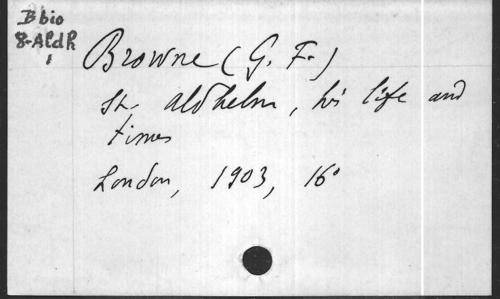 B bio
8-AldR
1
Browne (G. F.)
St. Aldhelm, his life and
times
London, 1903, 16°